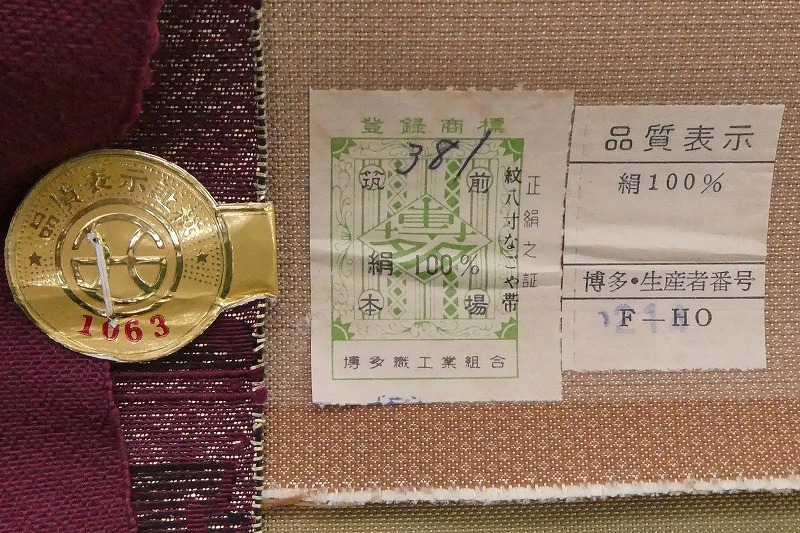 品質表示証紙
1063
登録商標
381
筑前
博多
絹100%
本場
紋八寸なごや帯
正絹之証
博多織工業組合
品質表示
絹100%
博多・生産者番号
F-HO